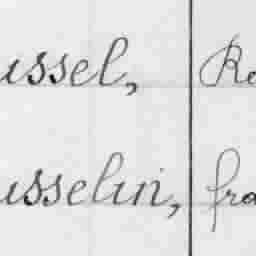 ussel, Re
usselin, fra